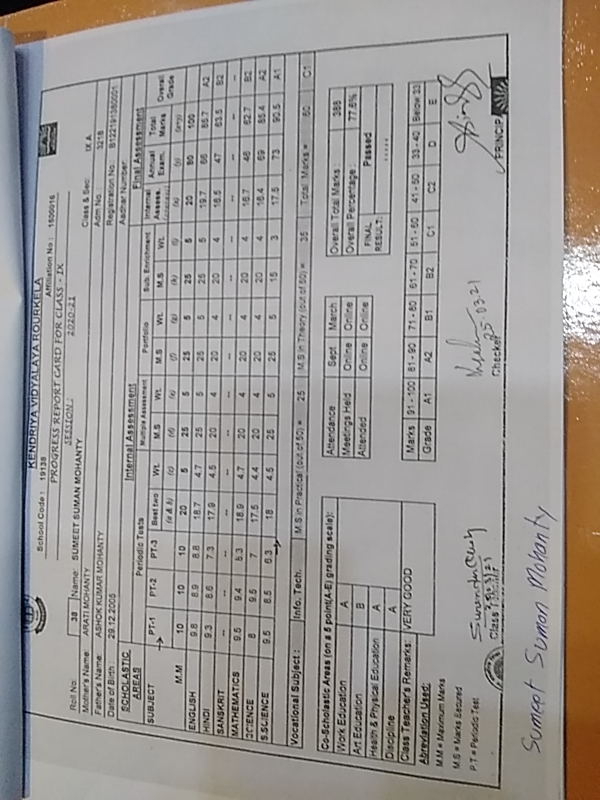 KENDRIYA VIDYALAYA ROURKELA
School Code : 19138 Affiliation No : 1500016
PROGRESS REPORT CARD FOR CLASS - IX
SESSION : 2020-21
Roll No: 38 Name: SUMEET SUMAN MOHANTY Class & Sec: IX A
Mother's Name: ARATI MOHANTY Adm No. 3218
Father's Name: ASHOK KUMAR MOHANTY Registration No
Date of Birth 29.12.2005 Aadhar Number:
SCHOLASTIC AREAS Internal Assessment Final Assessment
Periodic Tests Multiple Assessment Portfolio Sub. Enrichment Internal Assess. Annual Exam. Total Marks Overall Grade
SUBJECT PT-1 PT-2 PT-3 Best two Wt. M.S Wt. M.S Wt. M.S Wt.
M.M 10 10 10 20 5 25 5 25 5 25 5 20 80 100
ENGLISH 9.8 8.9 8.8 18.7 4.7 25 5 25 5 25 5 19.7 66 85.7 A2
HINDI 9.3 8.6 7.3 17.9 4.5 20 4 20 4 20 4 16.5 47 63.5 B2
SANSKRIT -- -- -- -- -- -- -- -- -- -- --
MATHEMATICS 9.5 9.4 18.9 4.7 20 4 20 4 20 4 16.7 46 62.7 B2
SCIENCE 8 9.5 7 17.5 4.4 20 4 20 4 20 4 16.4 69 85.4 A2
S.SCIENCE 9.5 8.5 6.3 18 4.5 25 5 25 5 15 3 17.5 73 90.5 A1
Vocational Subject : Info. Tech. M.S in Practical (out of 50) = 25 M.S in Theory (out of 50) = 35 Total Marks = 60 C1
Co-Scholastic Areas (on a 5 point(A-E) grading scale):
Work Education A
Art Education B
Health & Physical Education A
Discipline A
Class Teacher's Remarks: VERY GOOD
Attendance Sept March
Meetings Held Online Online
Attended Online Online
Overall Total Marks 388
Overall Percentage: 77.6%
FINAL RESULT: Passed
*****
Marks 91-100 81-90 71-80 61-70 51-60 41-50 33-40 Below 33
Grade A1 A2 B1 B2 C1 C2 D E
Abreviation Used:
M.M = Maximum Marks
M.S = Marks Secured
P.T = Periodic Test
Class Teacher
25-03-21
Checker
PRINCIP
Sumeet Suman Mohanty